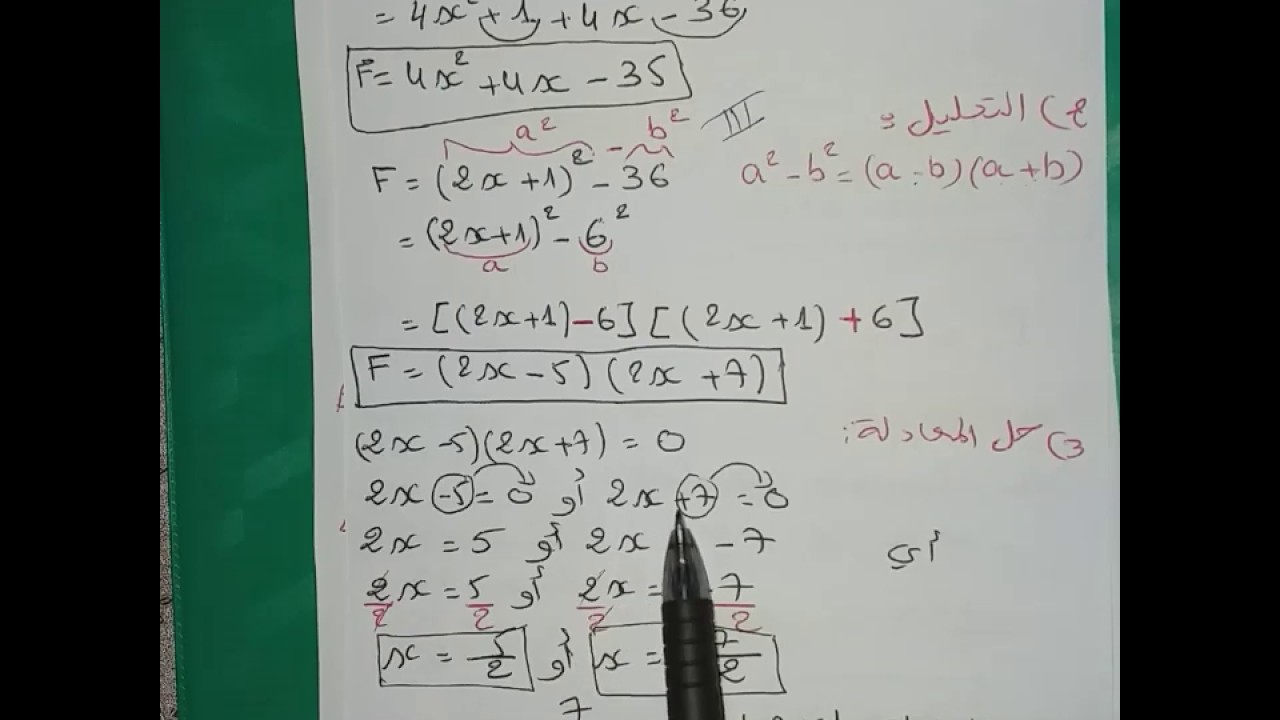 = 4x² + 1 + 4x - 36
F = 4x² + 4x - 35
III
2) التحليل:
a² - b²
F = (2x+1)² - 36
a² - b² = (a - b)(a + b)
= (2x+1)² - 6²
a b
= [(2x+1) - 6] [(2x+1) + 6]
F = (2x - 5)(2x + 7)
3) حل المعادلة:
(2x - 5)(2x + 7) = 0
2x - 5 = 0 أو 2x + 7 = 0
2x = 5 أو 2x - 7
أي
2x/2 = 5/2 أو 2x/2 = 7/2
x = 5/2 أو x = 7/2
7